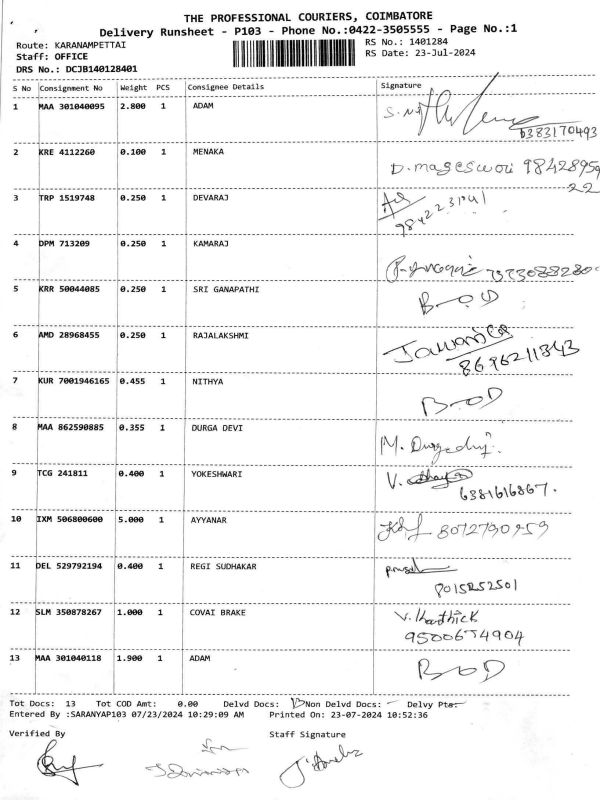 THE PROFESSIONAL COURIERS, COIMBATORE
Delivery Runsheet - P103 - Phone No.:0422-3505555 - Page No.:1
Route: KARANAMPETTAI RS No.: 1401284
Staff: OFFICE RS Date: 23-Jul-2024
DRS No.: DCJB140128401
S No Consignment No Weight PCS Consignee Details Signature
1 MAA 301040095 2.800 1 ADAM
6383170493
2 KRE 4112260 0.100 1 MENAKA
D. mageswori 98428959
22
3 TRP 1519748 0.250 1 DEVARAJ
4 DPM 713209 0.250 1 KAMARAJ
5 KRR 50044085 0.250 1 SRI GANAPATHI
BOD
6 AMD 28968455 0.250 1 RAJALAKSHMI
8696211343
7 KUR 7001946165 0.455 1 NITHYA
BOD
8 MAA 862590885 0.355 1 DURGA DEVI
M. Durgadevi
9 TCG 241811 0.400 1 YOKESHWARI
V.
6381616867.
10 IXM 506800600 5.000 1 AYYANAR
11 DEL 529792194 0.400 1 REGI SUDHAKAR
8015252501
12 SLM 350878267 1.000 1 COVAI BRAKE
V. Karthick
9500654904
13 MAA 301040118 1.900 1 ADAM
BOD
Tot Docs: 13 Tot COD Amt: 0.00 Delvd Docs: 13 Non Delvd Docs: - Delvy Pts:
Entered By :SARANYAP103 07/23/2024 10:29:09 AM Printed On: 23-07-2024 10:52:36
Verified By Staff Signature